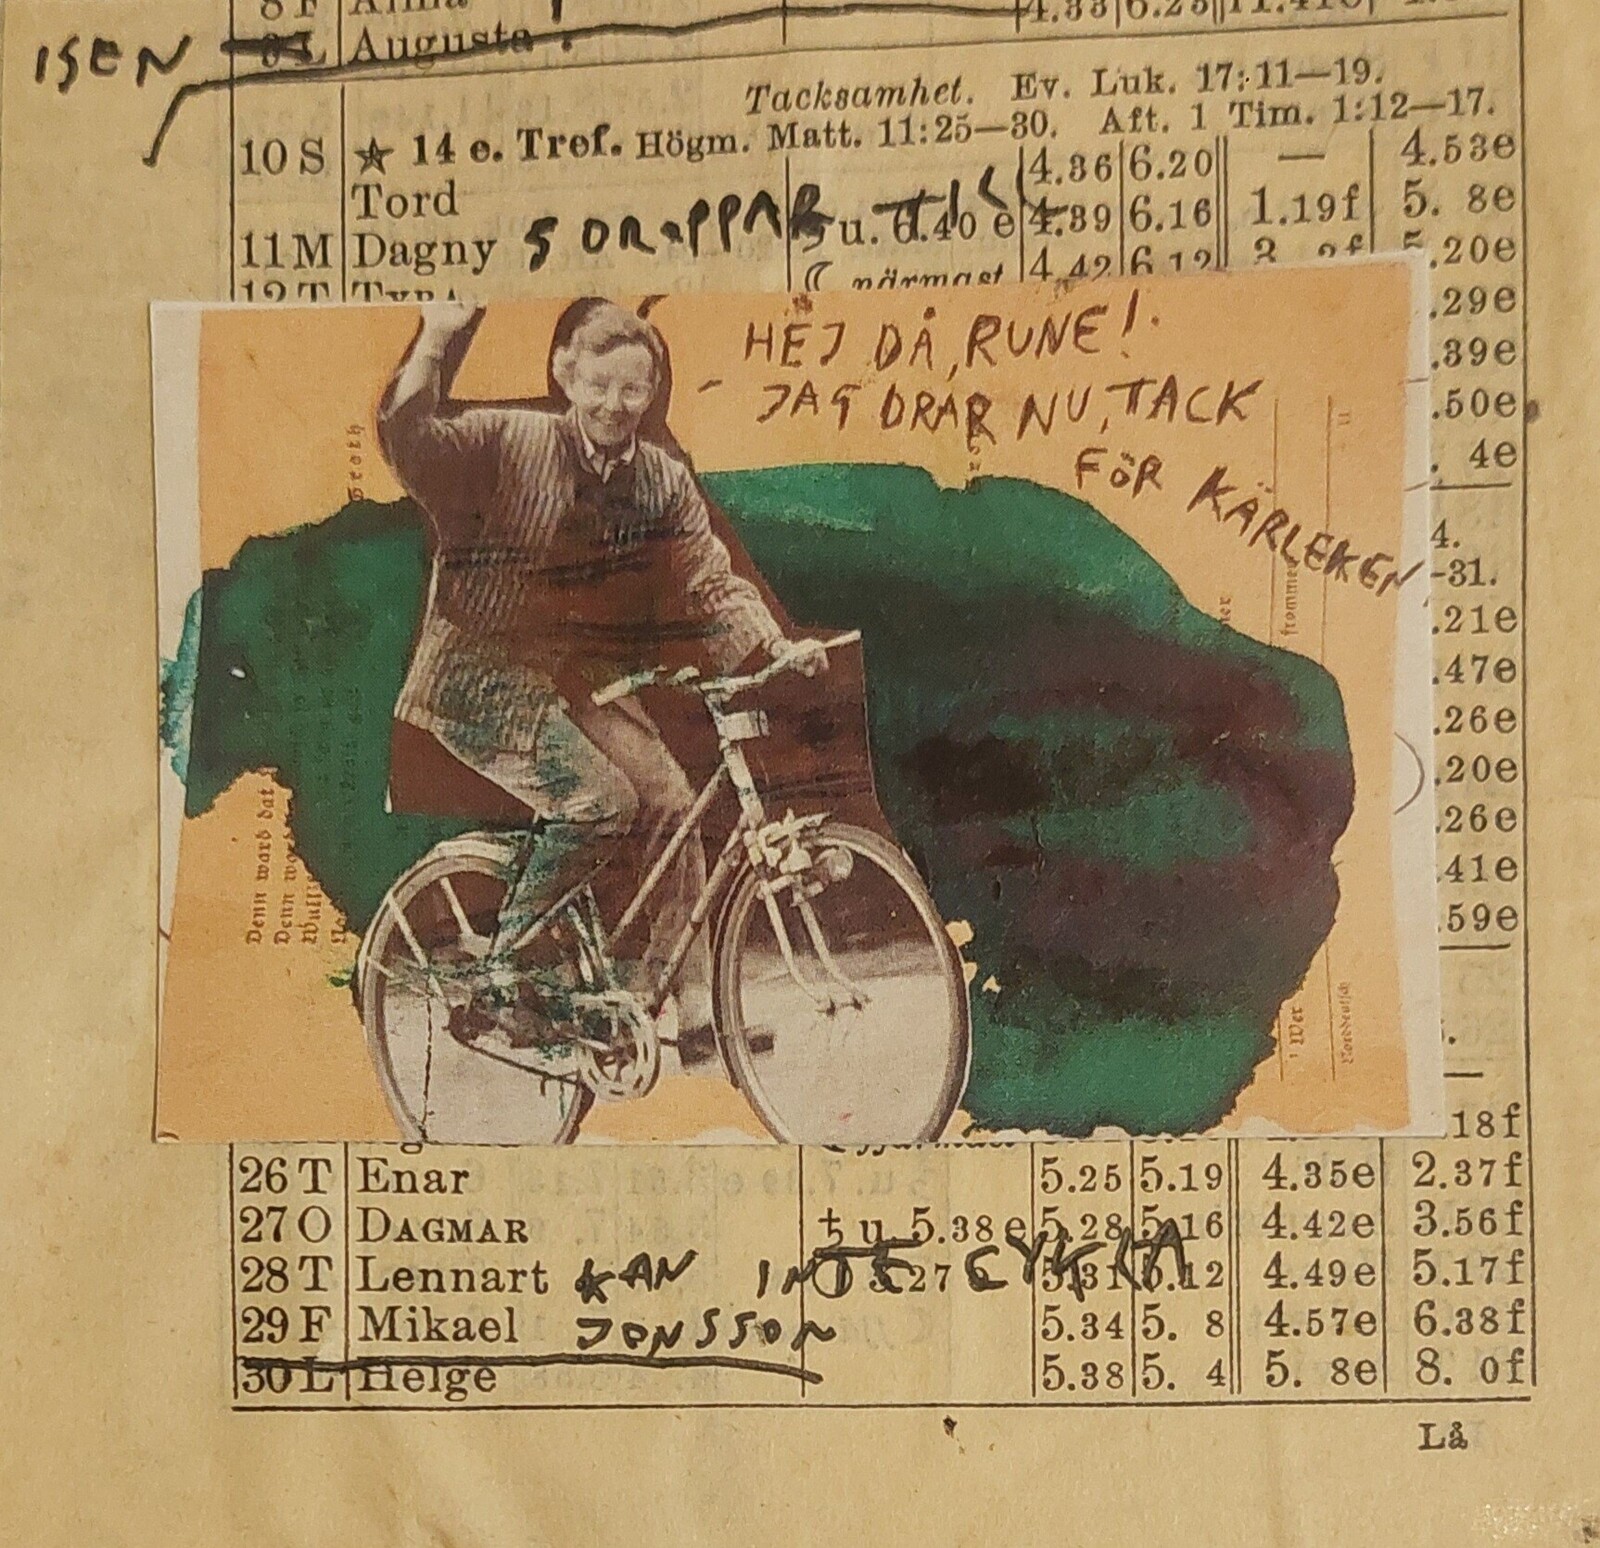 8 F Alma 4.33 6.23 11.41e
ISEN 9 L Augusta
Tacksamhet. Ev. Luk. 17:11—19.
10 S ★ 14 e. Tref. Högm. Matt. 11:25—30. Aft. 1 Tim. 1:12—17.
Tord 4.36 6.20 — 4.53e
11 M Dagny u. 6.40 e 4.39 6.16 1.19f 5. 8e
12 T TYRA ☾ närmast 4.42 6.12 .20e
.29e
HEJ DÅ, RUNE!
.39e
- JAG DRAR NU, TACK
.50e
FÖR KÄRLEKEN
. 4e
4.
-31.
.21e
.47e
.26e
.20e
.26e
.41e
.59e
Denn ward dat
frommen
Wer
Norddeutsch
.18f
26 T Enar 5.25 5.19 4.35e 2.37f
27 O DAGMAR ♄ u. 5.38 e 5.28 5.16 4.42e 3.56f
28 T Lennart KAN INTE CYKLA 5.31 5.12 4.49e 5.17f
29 F Mikael JONSSON 5.34 5. 8 4.57e 6.38f
30 L Helge 5.38 5. 4 5. 8e 8. 0f
Lå